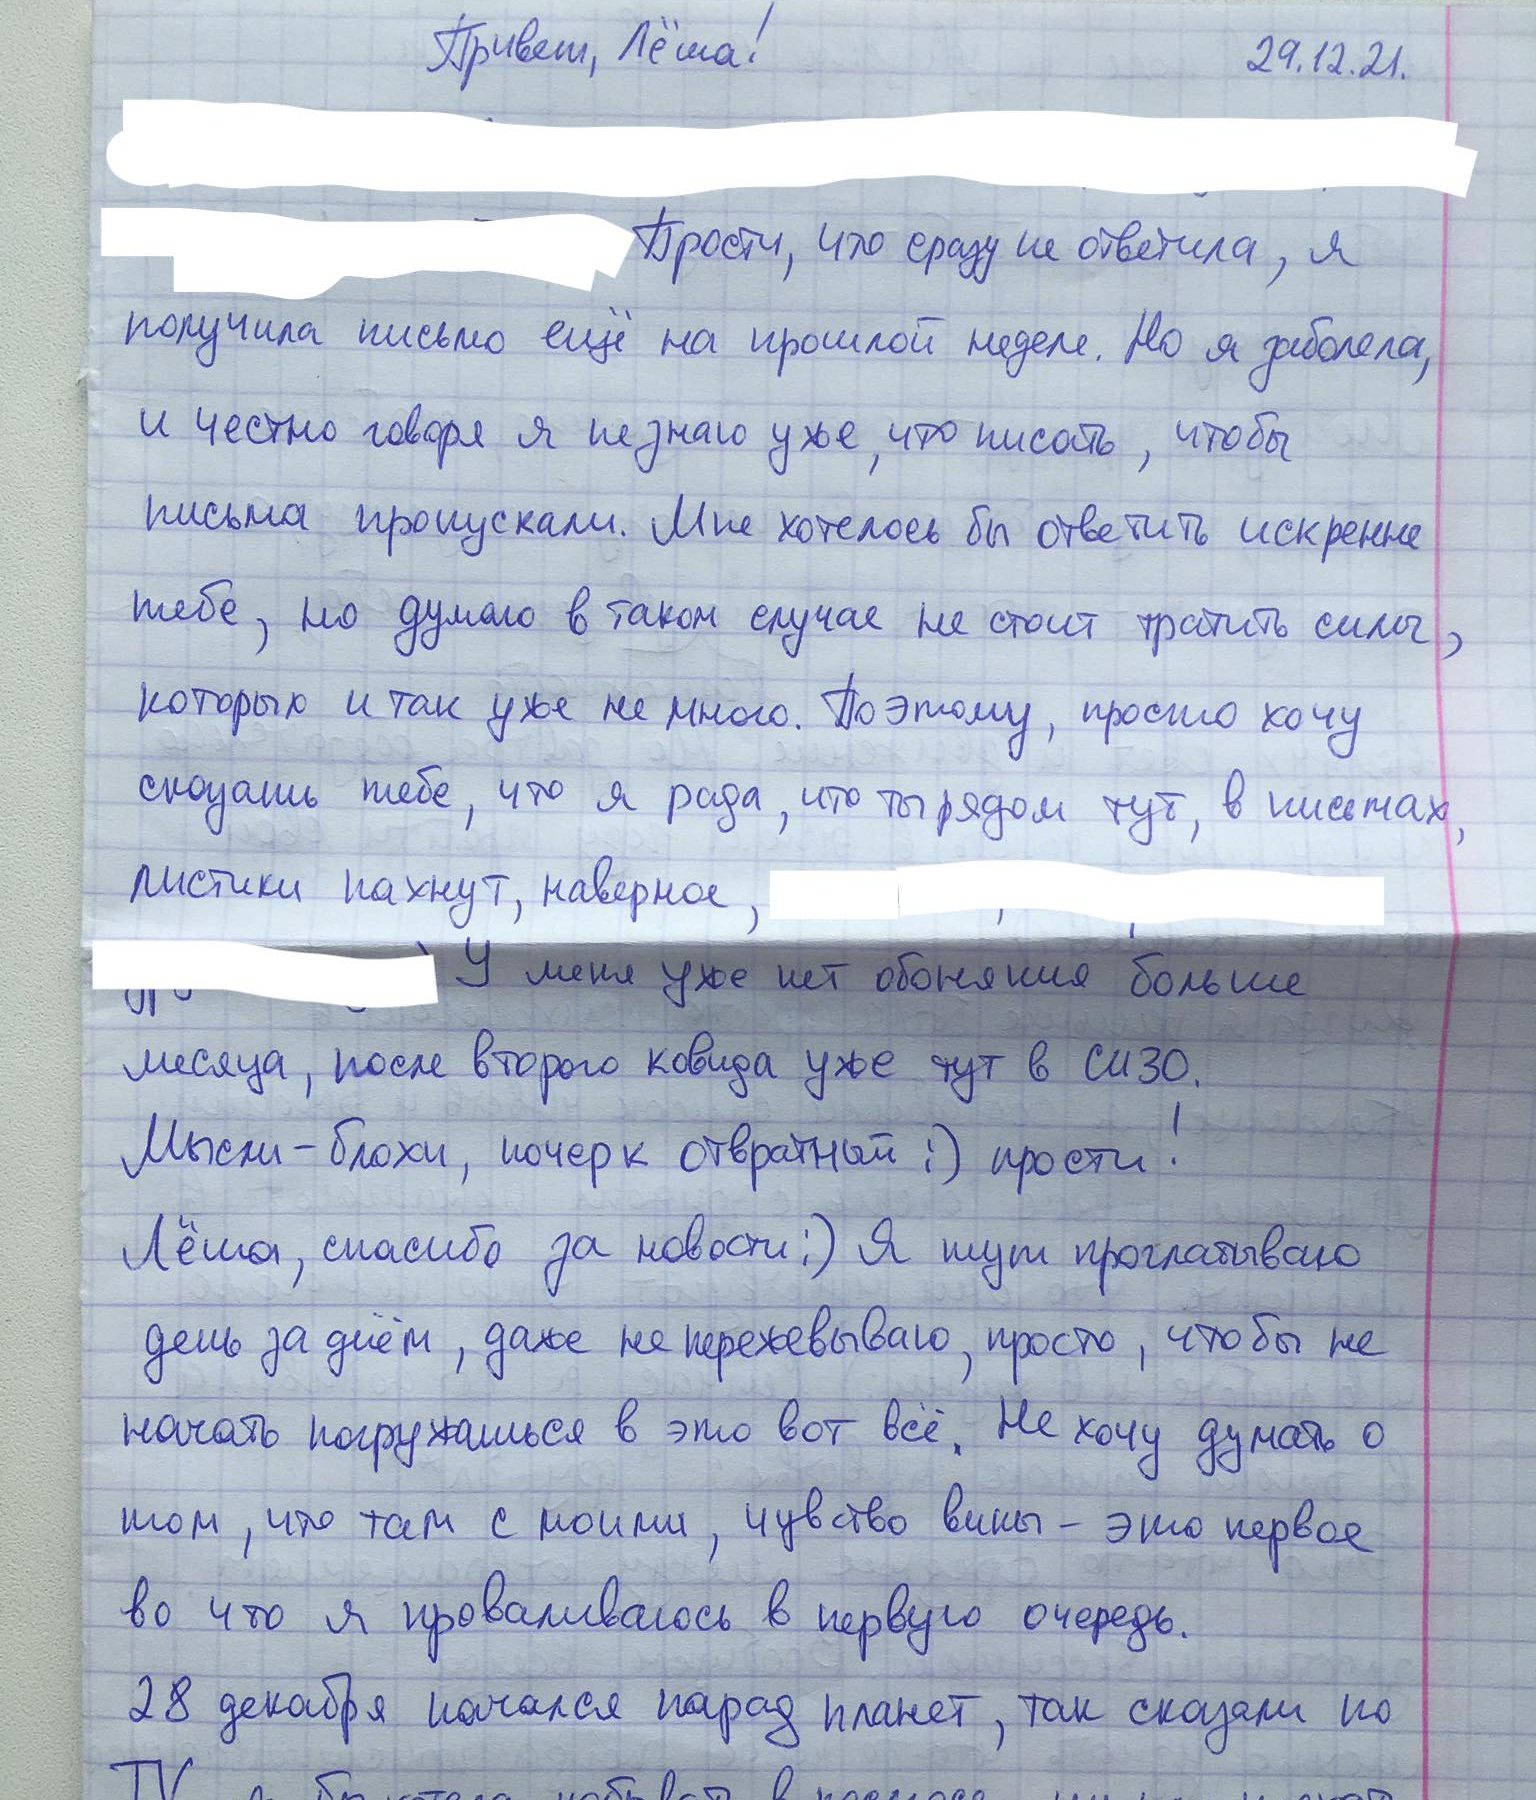 Привет, Лёша!
29.12.21.
Прости, что сразу не ответила, я
получила письмо ещё на прошлой неделе. Но я заболела,
и честно говоря я не знаю уже, что писать, чтобы
письма пропускали. Мне хотелось бы ответить искренне
тебе, но думаю в таком случае не стоит тратить силы,
которых и так уже не много. Поэтому, просто хочу
сказать тебе, что я рада, что ты рядом тут, в письмах,
листики пахнут, наверное,
У меня уже нет обоняния больше
месяца, после второго ковида уже тут в СИЗО.
Мысли-блохи, почерк отвратный :) прости!
Лёша, спасибо за новости :) Я тут проглатываю
день за днём, даже не пережевываю, просто, чтобы не
начать погружаться в это вот всё. Не хочу думать о
том, что там с моими, чувство вины - это первое
во что я проваливаюсь в первую очередь.
28 декабря начался парад планет, так сказали по
TV